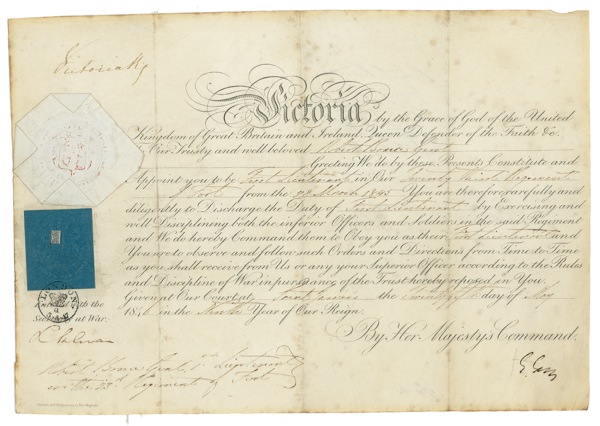 Victoria R
Victoria by the Grace of God of the United
Kingdom of Great Britain and Ireland, Queen Defender of the Faith &c.
To Our Trusty and well beloved Robert Bruce Gent
Greeting We do by these Presents Constitute and
Appoint you to be First Lieutenant in Our Twenty third Regiment
of Foot from the March 1845 You are therefore carefully and
diligently to Discharge the Duty of First Lieutenant by Exercising and
well Disciplining both the inferior Officers and Soldiers in the said Regiment
and We do hereby Command them to Obey you as their First Lieutenant and
You are to observe and follow such Orders and Directions from Time to Time
as you shall receive from Us or any your Superior Officer according to the Rules
and Discipline of War in pursuance of the Trust hereby reposed in You.
Given at Our Court at Saint James's the day of May
184 in the Year of Our Reign.
Entered with the
Secretary at War.
By Her Majesty's Command.
Robert Bruce Gent 1st Lieutenant
in the 23d Regiment of Foot